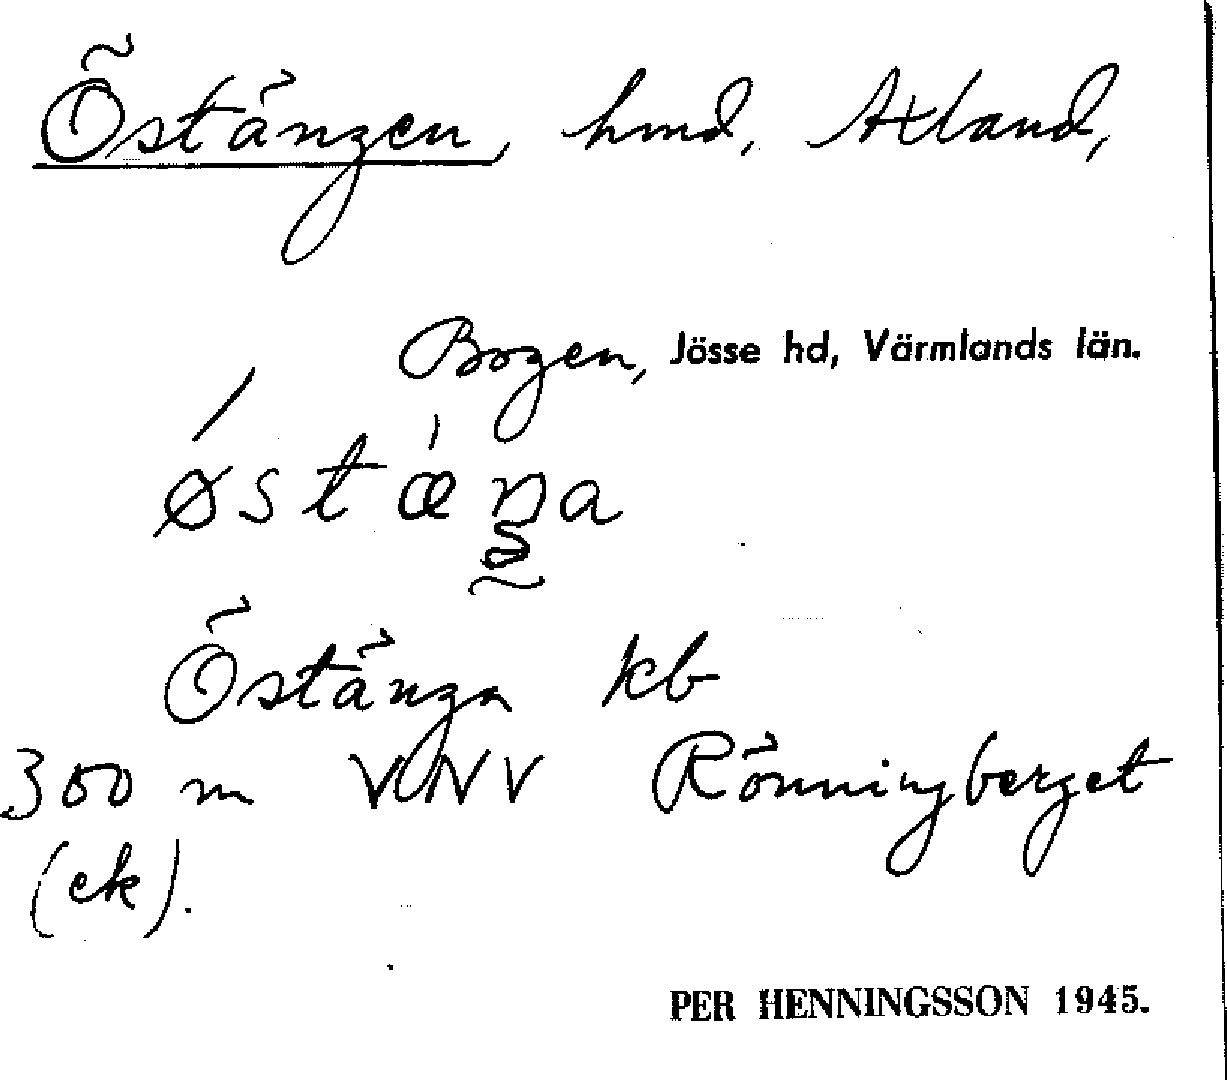 Östängen, hmd, Axland,
Bogen, Jösse hd, Värmlands län.
østæŋa
Östänga kb
300 m VNV Rönningberget
(ek).
PER HENNINGSSON 1945.